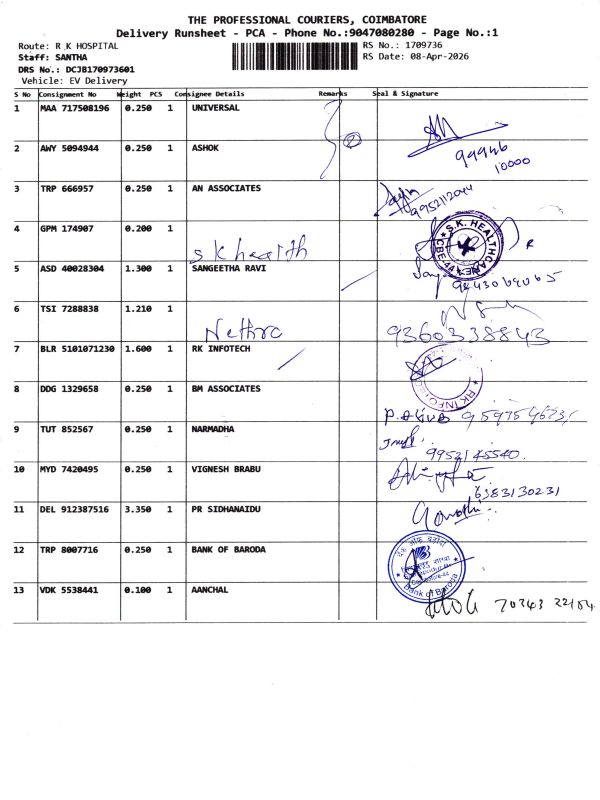 THE PROFESSIONAL COURIERS, COIMBATORE
Delivery Runsheet - PCA - Phone No.:9047080280 - Page No.:1
Route: R K HOSPITAL RS No.: 1709736
Staff: SANTHA RS Date: 08-Apr-2026
DRS No.: DCJB170973601
Vehicle: EV Delivery
S No Consignment No Weight PCS Consignee Details Remarks Seal & Signature
1 MAA 717508196 0.250 1 UNIVERSAL
2 AWY 5094944 0.250 1 ASHOK
99946
10000
3 TRP 666957 0.250 1 AN ASSOCIATES
9952112044
4 GPM 174907 0.200 1
S k health
S.K. HEALTHCARE
CBE-44
5 ASD 40028304 1.300 1 SANGEETHA RAVI
6 TSI 7288838 1.210 1
Nethra 9360338843
7 BLR 5101071230 1.600 1 RK INFOTECH
RK INFOTECH
8 DDG 1329658 0.250 1 BM ASSOCIATES
9 TUT 852567 0.250 1 NARMADHA
9952145540.
10 MYD 7420495 0.250 1 VIGNESH BRABU
6383130231
11 DEL 912387516 3.350 1 PR SIDHANAIDU
Gomathi
12 TRP 8007716 0.250 1 BANK OF BARODA
Bank of Baroda
13 VDK 5538441 0.100 1 AANCHAL
70343 22104